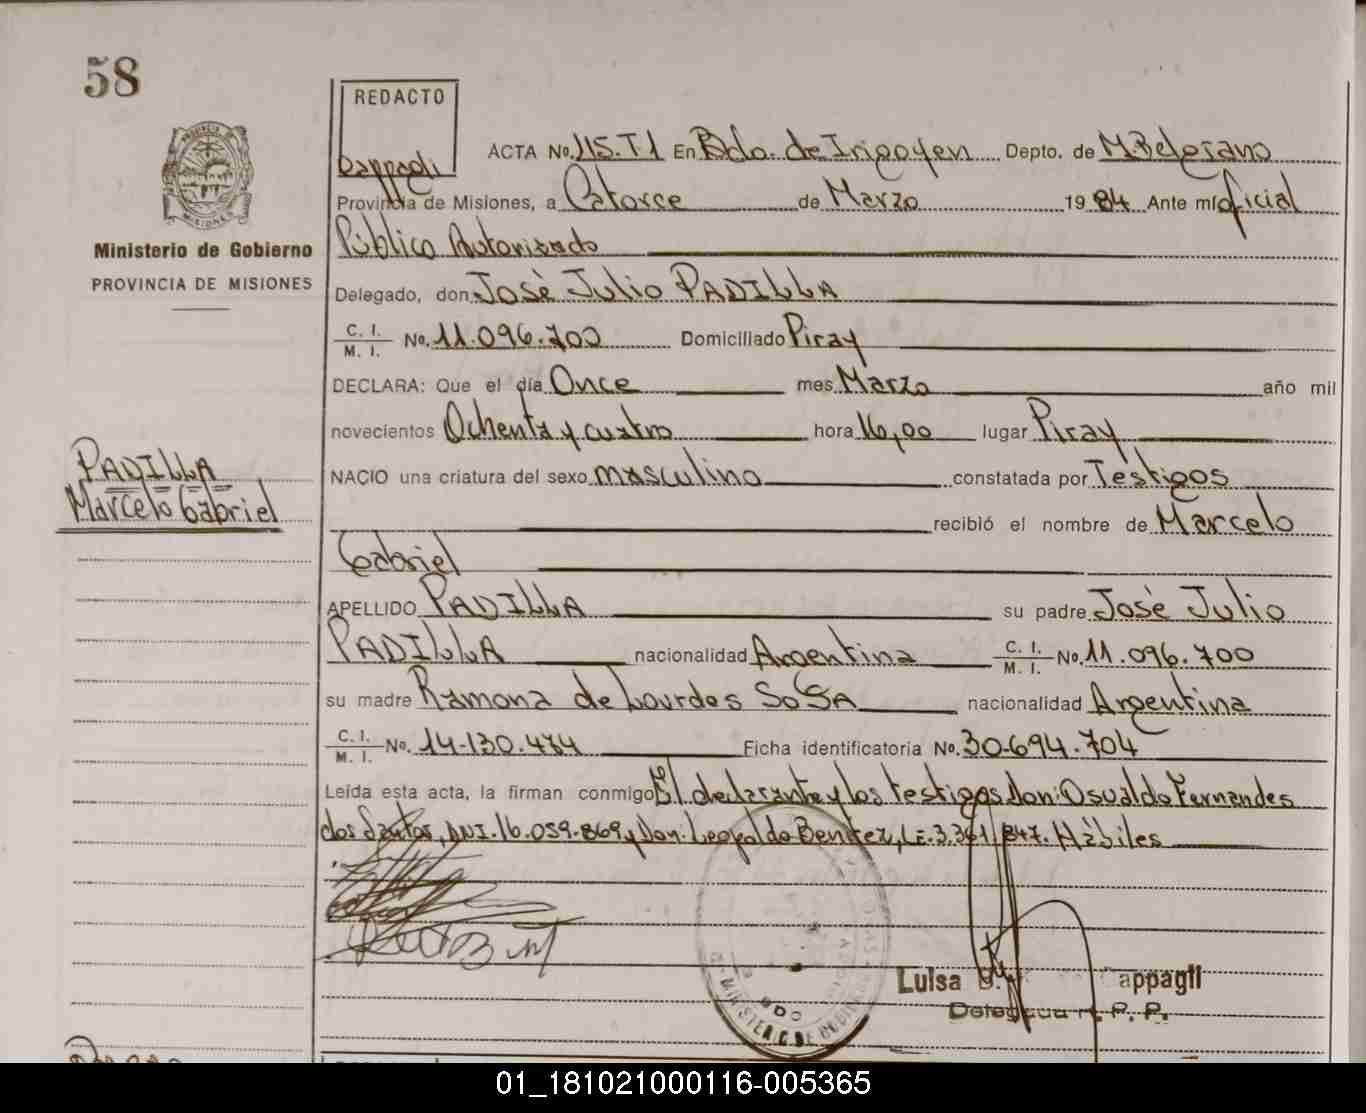 58
REDACTO
Cappagli
ACTA No. 115.T1 En Bdo. de Irigoyen Depto. de M. Belgrano
Provincia de Misiones, a Catorce de Marzo 1984 Ante mí oficial
Público Autorizado
Ministerio de Gobierno
PROVINCIA DE MISIONES
Delegado, don José Julio PADILLA
C. I. / M. I. No. 11.096.700 Domiciliado Piray
DECLARA: Que el día Once mes Marzo año mil
novecientos Ochenta y cuatro hora 16,00 lugar Piray
PADILLA
Marcelo Gabriel
NACIO una criatura del sexo masculino constatada por Testigos
recibió el nombre de Marcelo
Gabriel
APELLIDO PADILLA su padre José Julio
PADILLA nacionalidad Argentina C. I. / M. I. No. 11.096.700
su madre Ramona de Lourdes SOSA nacionalidad Argentina
C. I. / M. I. No. 14.130.484 Ficha identificatoria No. 30.694.704
Leída esta acta, la firman conmigo El declarante y los testigos Don: Osvaldo Fernandes
dos Santos, DNI. 16.059.869 y Don. Leopoldo Benitez, LE. 3.361.847. Hábiles
Luisa Cappagli
Delegada R. P. P.
01_181021000116-005365